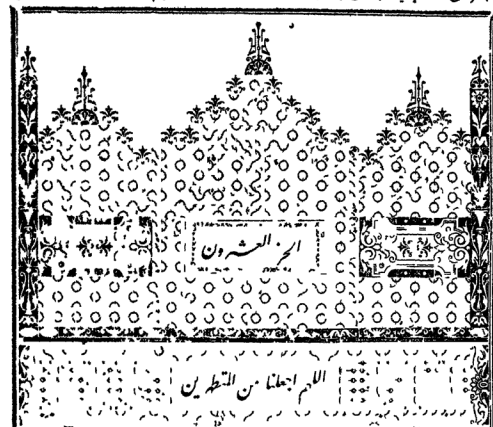 الجزء العشرون
اللهم اجعلنا من المتطهرين